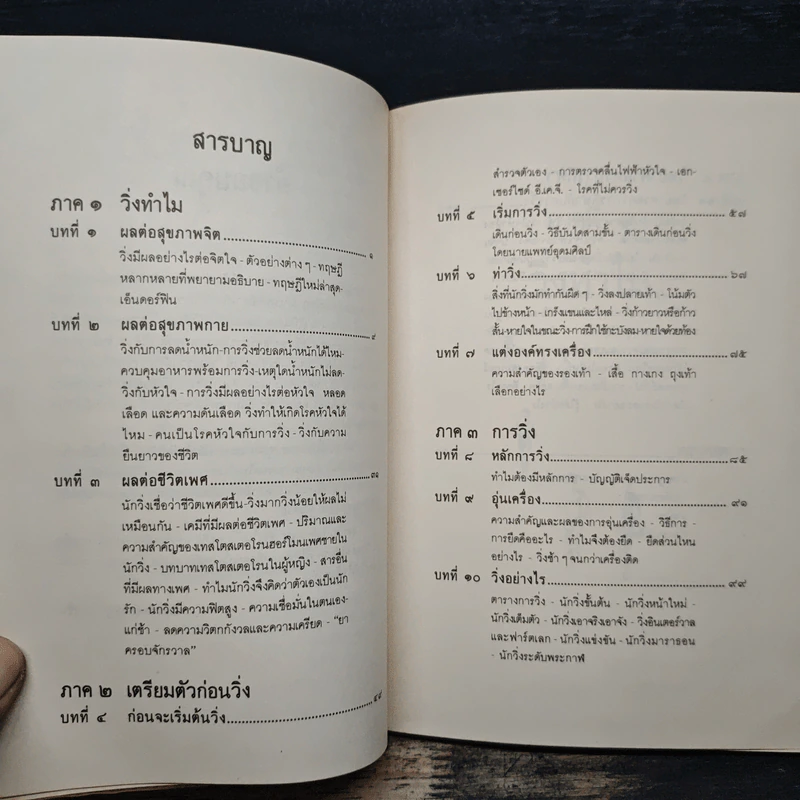 สารบาญ
ภาค ๑ วิ่งทำไม
บทที่ ๑ ผลต่อสุขภาพจิต ๑
วิ่งมีผลอย่างไรต่อจิตใจ - ตัวอย่างต่าง ๆ - ทฤษฎี
หลากหลายที่พยายามอธิบาย - ทฤษฎีใหม่ล่าสุด-
เอ็นดอร์ฟิน
บทที่ ๒ ผลต่อสุขภาพกาย ๙
วิ่งกับการลดน้ำหนัก-การวิ่งช่วยลดน้ำหนักได้ไหม-
ควบคุมอาหารพร้อมการวิ่ง-เหตุใดน้ำหนักไม่ลด-
วิ่งกับหัวใจ - การวิ่งมีผลอย่างไรต่อหัวใจ หลอด
เลือด และความดันเลือด วิ่งทำให้เกิดโรคหัวใจได้
ไหม - คนเป็นโรคหัวใจกับการวิ่ง - วิ่งกับความ
ยืนยาวของชีวิต
บทที่ ๓ ผลต่อชีวิตเพศ ๓๑
นักวิ่งเชื่อว่าชีวิตเพศดีขึ้น-วิ่งมากวิ่งน้อยให้ผลไม่
เหมือนกัน - เคมีที่มีผลต่อชีวิตเพศ - ปริมาณและ
ความสำคัญของเทสโตสเตอโรนฮอร์โมนเพศชายใน
นักวิ่ง - บทบาทเทสโตสเตอโรนในผู้หญิง - สารอื่น
ที่มีผลทางเพศ - ทำไมนักวิ่งจึงคิดว่าตัวเองเป็นนัก
รัก - นักวิ่งมีความฟิตสูง - ความเชื่อมั่นในตนเอง-
แก่ช้า - ลดความวิตกกังวลและความเครียด - "ยา
ครอบจักรวาล"
ภาค ๒ เตรียมตัวก่อนวิ่ง
บทที่ ๔ ก่อนจะเริ่มต้นวิ่ง ๔๘
สำรวจตัวเอง - การตรวจคลื่นไฟฟ้าหัวใจ - เอก-
เซอร์ไซด์ อี.เค.จี. - โรคที่ไม่ควรวิ่ง
บทที่ ๕ เริ่มการวิ่ง ๕๗
เดินก่อนวิ่ง - วิธีบันไดสามขั้น - ตารางเดินก่อนวิ่ง
โดยนายแพทย์อุดมศิลป์
บทที่ ๖ ท่าวิ่ง ๖๗
สิ่งที่นักวิ่งมักทำกันผิด ๆ - วิ่งลงปลายเท้า - โน้มตัว
ไปข้างหน้า - เกร็งแขนและไหล่ - วิ่งก้าวยาวหรือก้าว
สั้น-หายใจในขณะวิ่ง-การฝึกใช้กะบังลม-หายใจด้วยท้อง
บทที่ ๗ แต่งองค์ทรงเครื่อง ๗๕
ความสำคัญของรองเท้า - เสื้อ กางเกง ถุงเท้า
เลือกอย่างไร
ภาค ๓ การวิ่ง
บทที่ ๘ หลักการวิ่ง ๘๕
ทำไมต้องมีหลักการ - บัญญัติเจ็ดประการ
บทที่ ๙ อุ่นเครื่อง ๙๑
ความสำคัญและผลของการอุ่นเครื่อง - วิธีการ -
การยืดคืออะไร - ทำไมจึงต้องยืด - ยืดส่วนไหน
อย่างไร - วิ่งช้า ๆ จนกว่าเครื่องติด
บทที่ ๑๐ วิ่งอย่างไร ๙๙
ตารางการวิ่ง - นักวิ่งชั้นต้น - นักวิ่งหน้าใหม่ -
นักวิ่งเต็มตัว - นักวิ่งเอาจริงเอาจัง - วิ่งอินเตอร์วาล
และฟาร์ตเลก - นักวิ่งแข่งขัน - นักวิ่งมาราธอน
- นักวิ่งระดับพระกาฬ